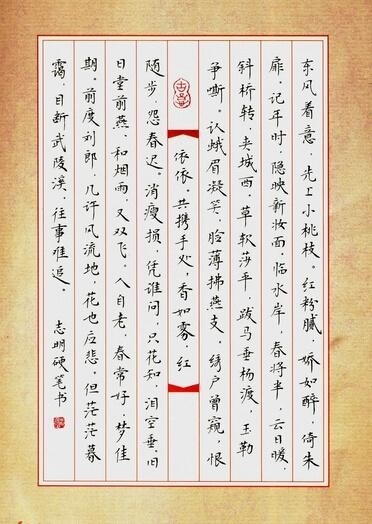 东风着意，先上小桃枝。红粉腻，娇如醉，倚朱
扉。记年时，隐映新妆面，临水岸，春将半，云日暖，
斜桥转，夹城西，草软莎平，跋马垂杨渡，玉勒
争嘶。认蛾眉凝笑，脸薄拂燕支。绣户曾窥，恨
依依。共携手处，香如雾，红
随步，怨春迟。消瘦损，凭谁问，只花知，泪空垂。旧
日堂前燕，和烟雨，又双飞。人自老，春常好，梦佳
期。前度刘郎，几许风流地，花也应悲。但茫茫暮
霭，目断武陵溪，往事难追。
志明硬笔书